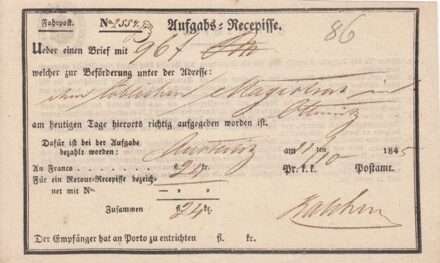 Fahrpost. No 2554. Aufgabs-Recepisse. 86
Ueber einen Brief mit 96 f
welcher zur Beförderung unter der Adresse:
löblichen Magistrat
Ollmütz
am heutigen Tage hierorts richtig aufgegeben worden ist.
Dafür ist bei der Aufgabe bezahlt worden: Austerlitz am 11 ten 10 1845
An Franco fl. 24 kr. Pr. k. k. Postamt.
Für ein Retour-Recepisse bezeich-
net mit N. — » — »
Zusammen fl. 24 kr.
Der Empfänger hat an Porto zu entrichten fl. kr.